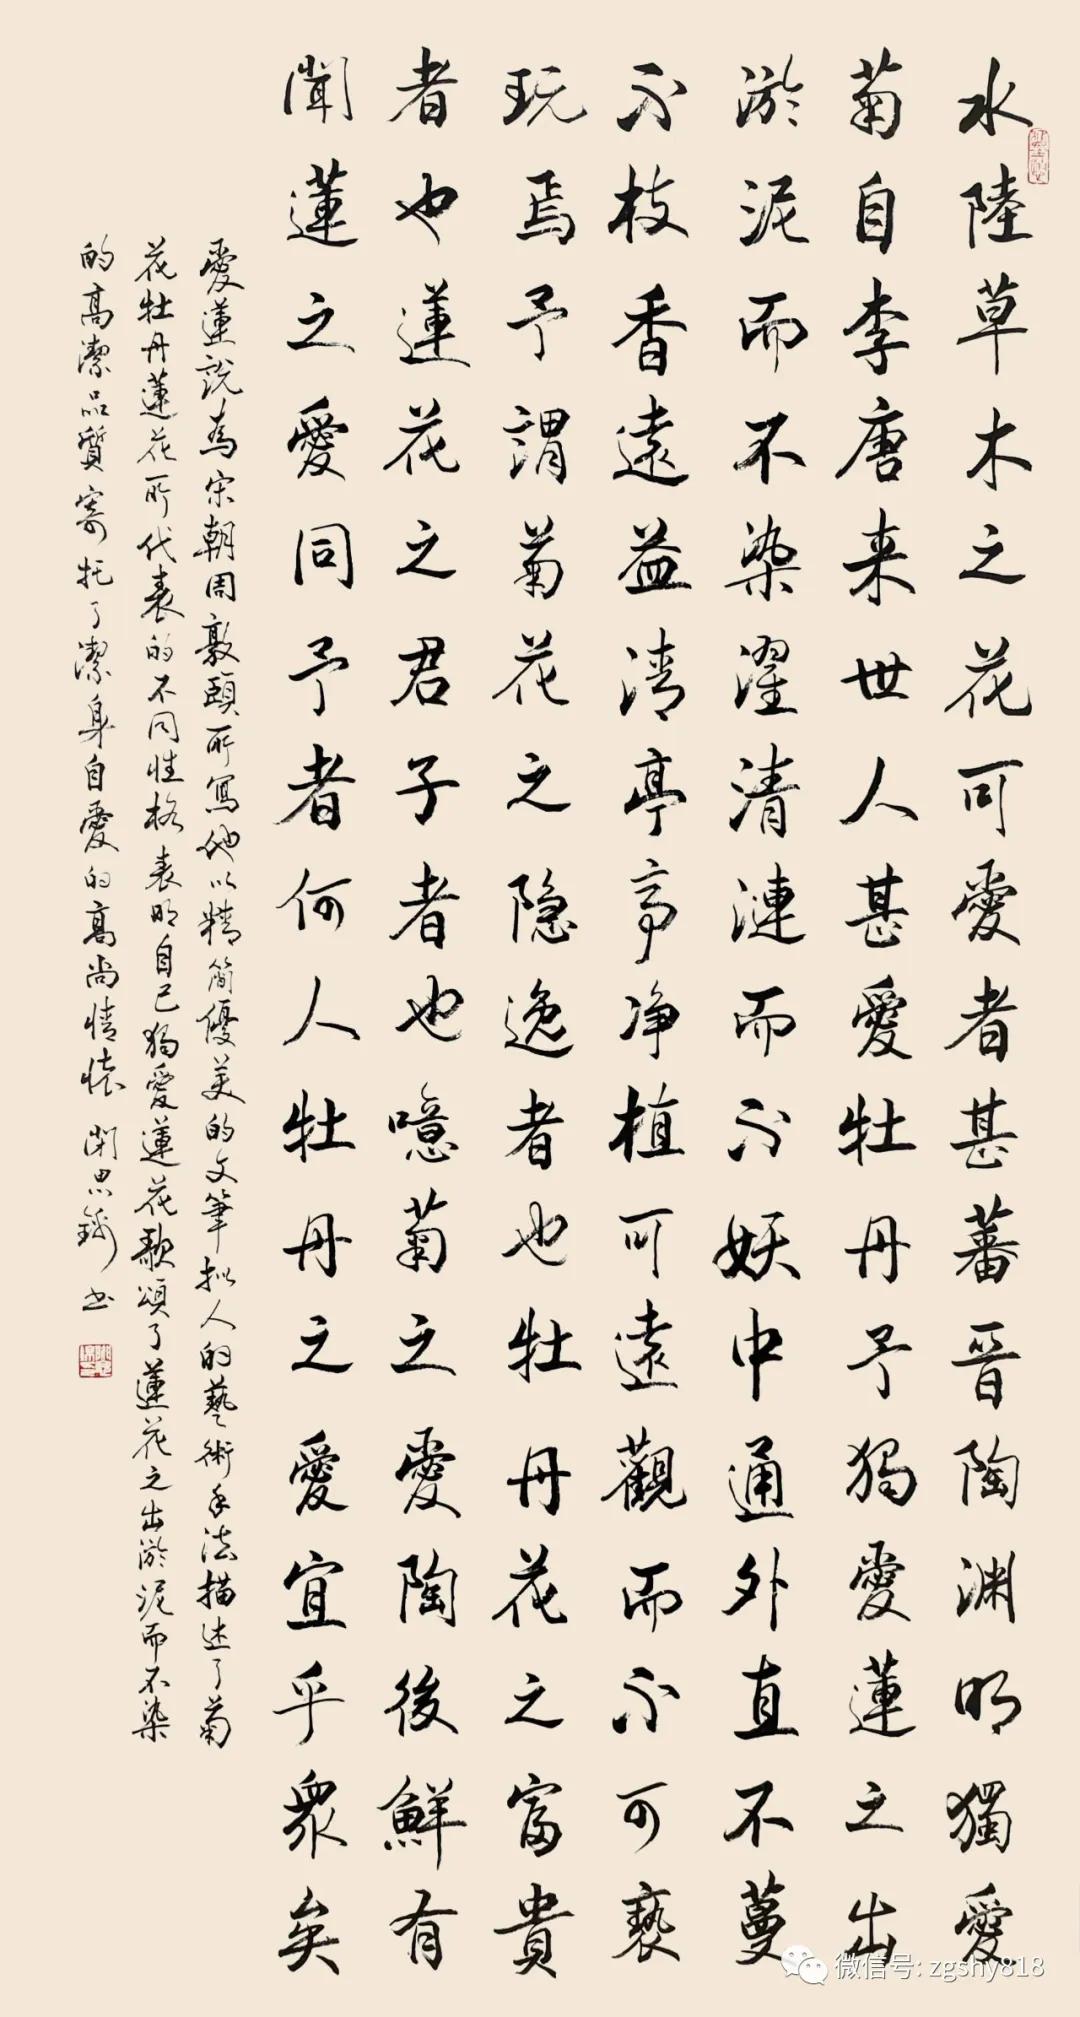 水陸草木之花可愛者甚蕃晉陶渊明獨愛
菊自李唐来世人甚愛牡丹予独愛蓮之出
淤泥而不染濯清漣而不妖中通外直不蔓
不枝香遠益清亭亭净植可遠觀而不可褻
玩焉予謂菊花之隐逸者也牡丹花之富貴
者也蓮花之君子者也噫菊之愛陶後鮮有
聞蓮之愛同予者何人牡丹之愛宜乎眾矣
愛蓮説為宋朝周敦頤所寫他以精简優美的文筆拟人的藝術手法描述了菊
花牡丹蓮花所代表的不同性格表明自己独愛蓮花歌頌了蓮花之出淤泥而不染
的高潔品質寄托了潔身自愛的高尚情懷 思書
微信号: zgshy818